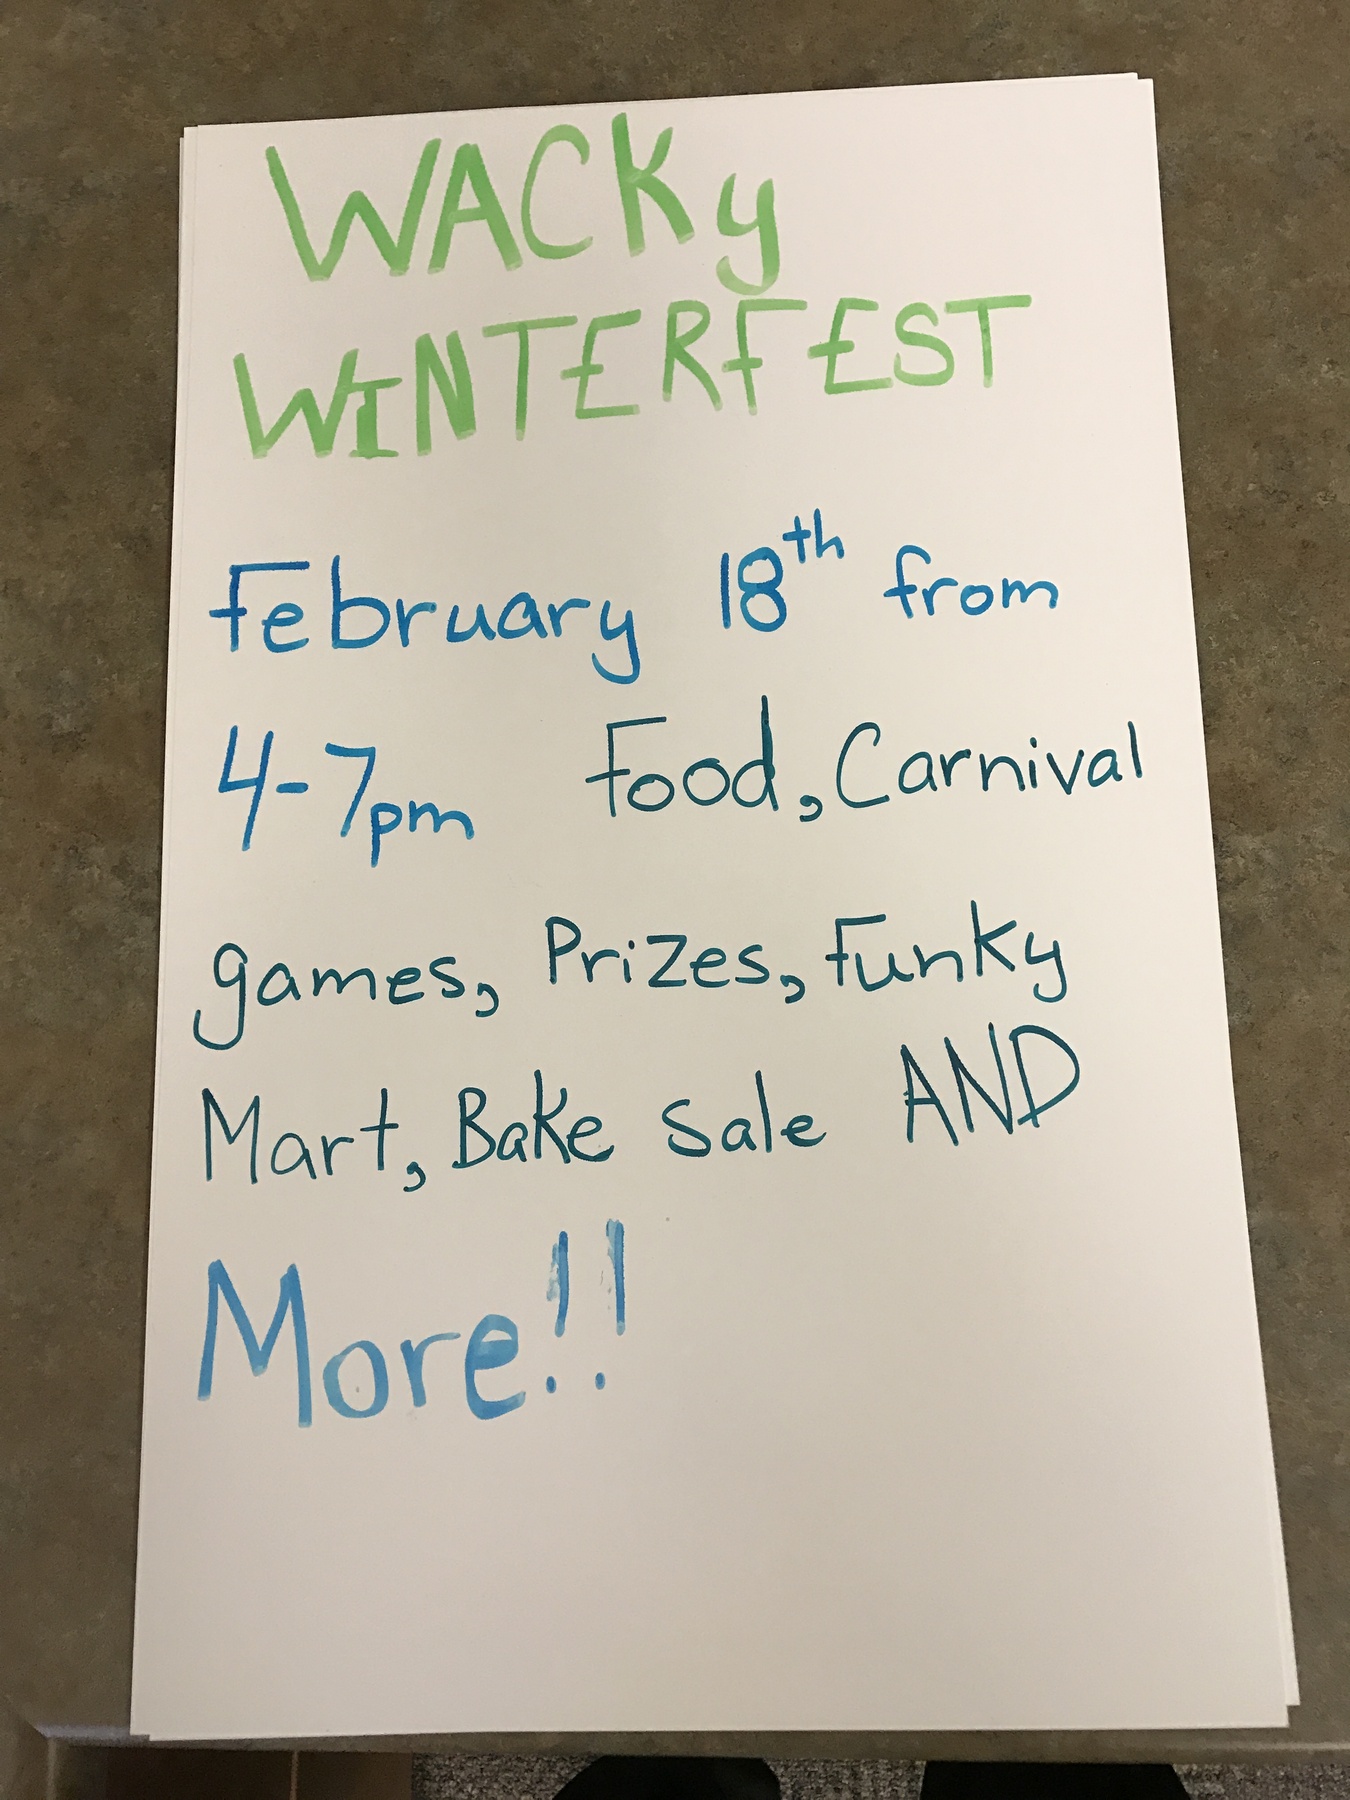 WACKy
WINTERFEST
February 18th from
4-7pm Food, Carnival
games, Prizes, Funky
Mart, Bake Sale AND
More!!